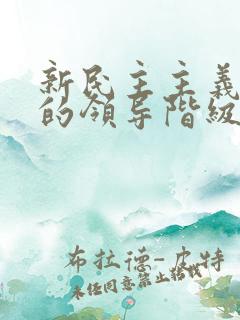 新民主主義
的領导階級
布拉德-皮特
未经同意禁止转载